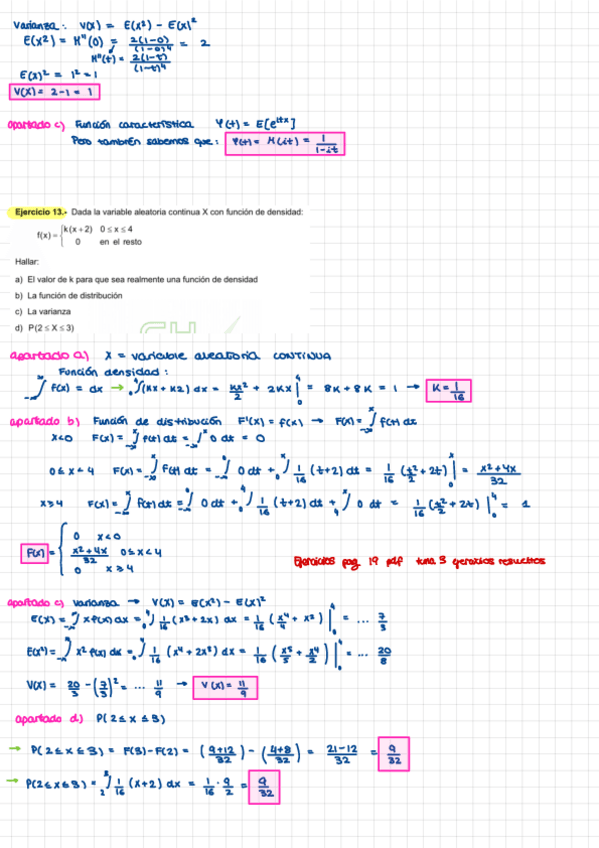 Varianza: V(X) = E(X²) - E(X)²
E(X²) = M''(0) = 2(1-0)/(1-0)⁴ = 2
M''(t) = 2(1-t)/(1-t)⁴
E(X)² = 1² = 1
V(X) = 2-1 = 1
apartado c) Función característica Ψ(t) = E[e^(itx)]
Pero también sabemos que: Ψ(t) = M(it) = 1/(1-it)
Ejercicio 13.- Dada la variable aleatoria continua X con función de densidad:
f(x) = { k(x+2) 0 ≤ x ≤ 4
0 en el resto
Hallar:
a) El valor de k para que sea realmente una función de densidad
b) La función de distribución
c) La varianza
d) P(2 ≤ X ≤ 3)
apartado a) X = variable aleatoria CONTINUA
Función densidad:
-∞∫∞ f(x) = dx → 0∫4 (Kx + K2) dx = Kx²/2 + 2Kx |0 4 = 8K + 8K = 1 → K = 1/16
apartado b) Función de distribución F'(x) = f(x) → F(x) = -∞∫x f(t) dt
x<0 F(x) = -∞∫x f(t) dt = -∞∫x 0 dt = 0
0 ≤ x < 4 F(x) = -∞∫x f(t) dt = -∞∫0 0 dt + 0∫x 1/16 (t+2) dt = 1/16 (t²/2 + 2t) |0 x = (x²+4x)/32
x ≥ 4 F(x) = -∞∫x f(t) dt = -∞∫0 0 dt + 0∫4 1/16 (t+2) dt + 4∫x 0 dt = 1/16 (t²/2 + 2t) |0 4 = 1
F(x) = { 0 x<0
(x²+4x)/32 0 ≤ x < 4
0 x ≥ 4
Ejercicios pag 19 pdf tuna 3 ejercicios resueltos
apartado c) Varianza → V(X) = E(X²) - E(X)²
E(X) = -∞∫∞ x f(x) dx = 0∫4 1/16 (x³ + 2x) dx = 1/16 (x⁴/4 + x²) |0 4 = ... 7/3
E(X²) = -∞∫∞ x² f(x) dx = 0∫4 1/16 (x⁴ + 2x³) dx = 1/16 (x⁵/5 + x⁴/2) |0 4 = ... 20/8
V(X) = 20/3 - (7/3)² = ... 11/9 → V(X) = 11/9
apartado d) P(2 ≤ X ≤ 3)
→ P(2 ≤ X ≤ 3) = F(3) - F(2) = ((9+12)/32) - ((4+8)/32) = (21-12)/32 = 9/32
→ P(2 ≤ X ≤ 3) = 2∫3 1/16 (x+2) dx = 1/16 · 9/2 = 9/32